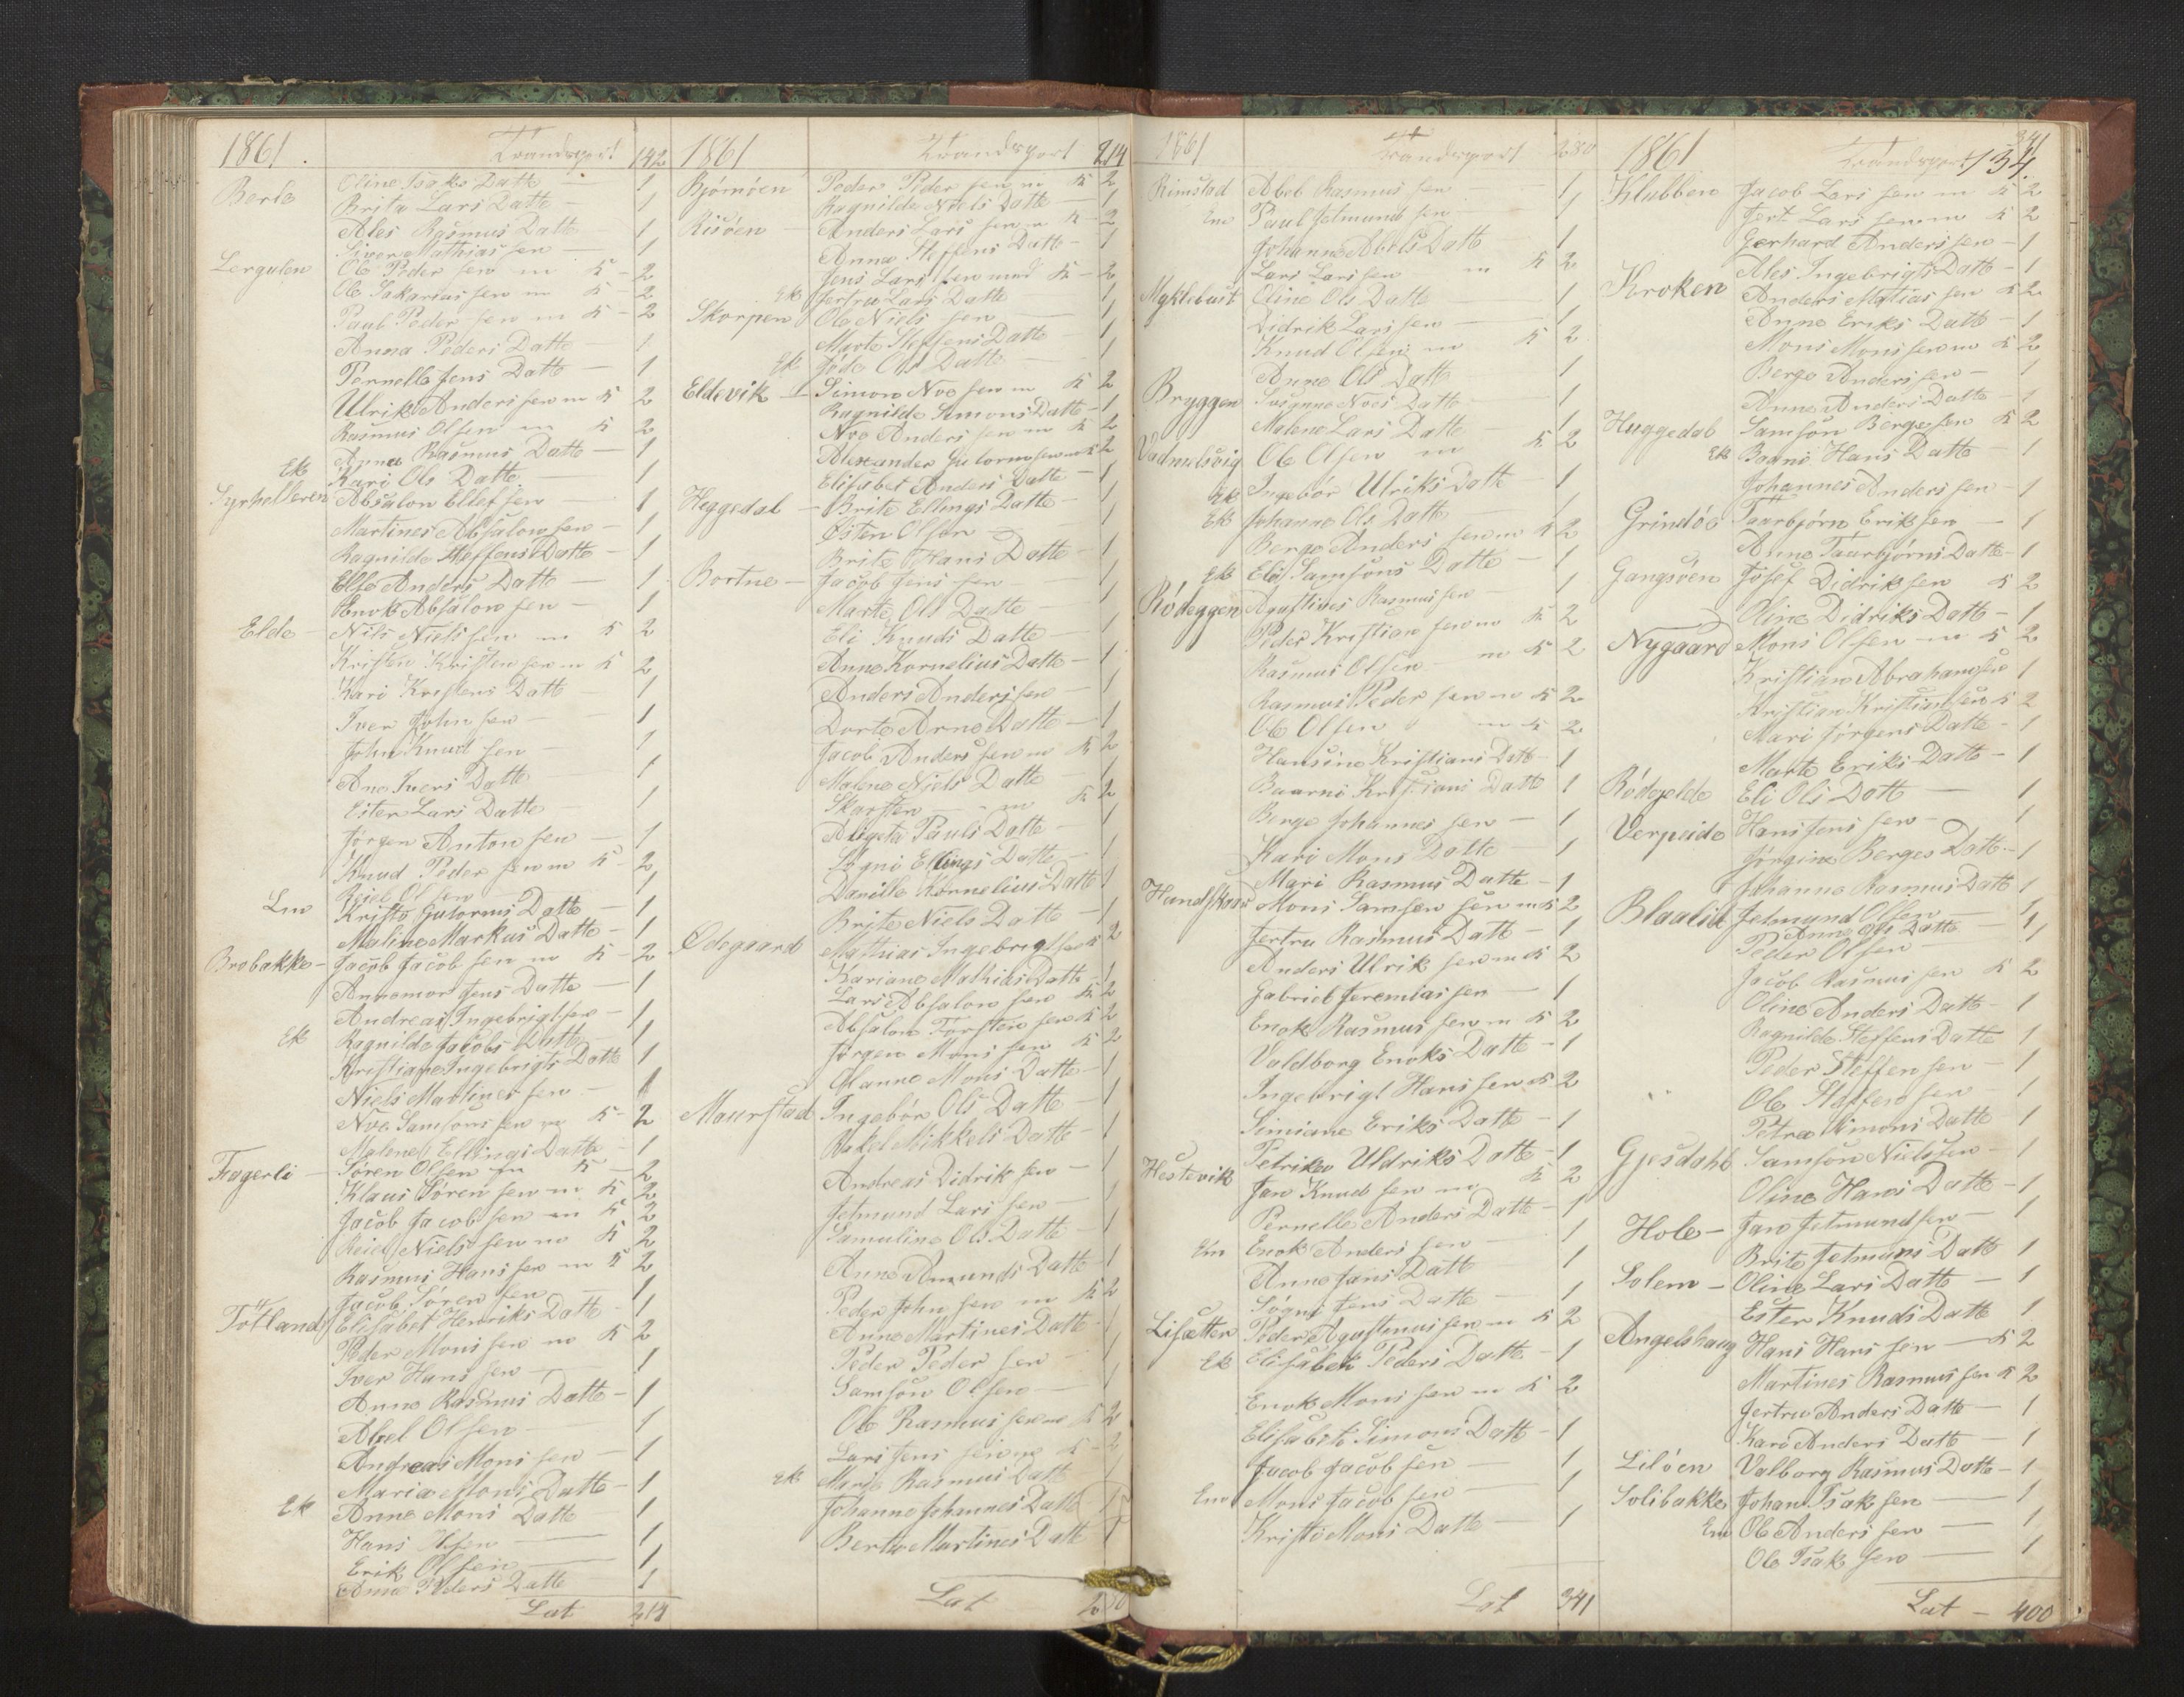 1861. Trandsport 142
Berle Oline Isaks Datte 1
Brita Lars Datte 1
Ales Rasmus Datte 1
Siver Mathias sen 1
Lergulen Ole Peder sen m K 2
Ole Sakarias sen m K 2
Paul Peder sen m K 2
Anna Peders Datte 1
Pernelle Jens Datte 1
Ulrik Anders sen m K 2
Rasmus Olsen m K 2
Anna Rasmus Datte 1
Ek Kari Ols Datte 1
Absalon Ellef sen 1
Martines Absalon sen 1
Ragnilde Steffens Datte 1
Else Anders Datte 1
Enok Absalon sen 1
Elde Nils Niels sen m K 2
Kristen Kristen sen m K 2
Kari Kristens Datt 1
Iver John sen 1
John Knud sen 1
Ane Ivers Datte 1
Ester Lars Datte 1
Jørgen Anton sen 1
Knud Peder sen m K 2
Olsen 1
Em Kristi Gutorms Datte 1
Maline Markus Datte 1
Brobakke Jacob Jacob sen m K 2
Annomor Jens Datte 1
Andreas Ingebrigtsen 1
Ek Ragnilde Jacobs Datte 1
Kristiane Ingebrigts Datte 1
Niels Martines sen 1
Noe Samsons sen m K 2
Malene Ellings Datte 1
Fagerli Søren Olsen m K 2
Klaus Søren sen m K 2
Jacob Jacob sen m K 2
Niels sen m K 2
Rasmus Hans sen m K 2
Jacob Søren sen 1
Totland Elisabet Henriks Datte 1
Peder Mons sen m K 2
Iver Hans sen 1
Anne Rasmus Datte 1
Abel Olsen 1
Andreas Mons sen 1
Maria Mons Datte 1
Ek Anne Mons Datte 1
Hans Olsen 1
Erik Olsen 1
Anne Peders Datte 1
Lat 214
1861 Trandsport 214
Bjørnøen Peder Peder sen m K 2
Ragnilde Niels Datte 1
Risøen Anders Lars sen m K 2
Anna Steffens Datte 1
Jens Lars sen med K 2
Ek Jertru Lars Datte 1
Skorpen Ole Niels sen 1
Marte Steffens Datte 1
Ek Jøde Ols Datte 1
Eldevik Simon Noe sen m K 2
Ragnilde Simons Datte 1
Noe Anders sen m K 2
Alexander Gutorm sen m K 2
Elisabet Anders Datte 1
Heggedal Brite Ellings Datte 1
Østen Olsen 1
Brite Hans Datte 1
Bortne Jacob Jens sen 1
Marte Ols Datte 1
Eli Knuds Datte 1
Anne Kornelius Datte 1
Anders Anders sen 1
Dorte Arne Datte 1
Jacob Anders sen m K 2
Malene Niels Datte 1
Skarsten m K 2
Pauls Datte 1
Ellings Datte 1
Danille Kornelius Datte 1
Brite Niels Datte 1
Ødegaard Mathias Ingebrigtsen K 2
Kariane Mathias Datte 1
Lars Absalon sen K 2
Absalon Torsten sen K 2
Jørgen Mons sen K 2
Mons Datte 1
Maurstad Ingebor Ols Datte 1
Rakel Mikkels Datte 1
Andreas Didrik sen 1
Jetmund Lars sen 1
Samuline Ols Datte 1
Anne Amunds Datte 1
Peder John sen m K 2
Anne Martines Datte 1
Peder Peder sen 1
Samson Olsen 1
Ole Rasmus sen m K 2
Lars Jens sen m K 2
Ek Marie Rasmus Datte 1
Johanne Johannes Datte 1
Berte Martines Datte 1
Lat 280
1861 Trandsport 280
Rimstad Abel Rasmus sen 1
Em Paul Jetmund sen 1
Johanne Abels Datte 1
Lars Lars sen m K 2
Myklebust Oline Ols Datte 1
Didrik Lars sen 1
Knud Olsen m K 2
Anne Ols Datt 1
Bryggen Susanne Noes Datte 1
Malene Lars Datte 1
Vadmelsvig Ole Olsen m K 2
Ek Ingebor Ulriks Datt 1
Ek Johanne Ols Datte 1
Berge Anders sen m K 2
Ek Eli Samsons Datte 1
Rødeggen Agustines Rasmus sen 1
Peder Kristian sen m K 2
Rasmus Olsen m K 2
Rasmus Peder sen m K 2
Ole Olsen m K 2
Hansine Kristians Datt 1
Kristians Datte 1
Berge Johannes sen 1
Kari Mons Datte 1
Mari Rasmus Datte 1
Mons Samson sen m K 2
Jertru Rasmus Datt 1
Anders Ulrik sen m K 2
Gabriel Jeremias sen 1
Enok Rasmus sen m K 2
Valdborg Enoks Datte 1
Ingebrigt Hans sen K 2
Simiane Eriks Datte 1
Petrikke Uldriks Datte 1
Hestevik Jan Knud sen m K 2
Pernelle Anders Datte 1
Em Enok Anders sen 1
Anne Jans Datte 1
Søgni Jens Datte 1
Lisætter Peder Agustinus sen m K 2
Ek Elisabet Peders Datte 1
Enok Mons sen m K 2
Elisabet Simons Datt 1
Jacob Jacob sen 1
Em Mons Jacob sen 1
Kristi Mons Datte 1
Lat 341
1861 Trandsport 341
Klubben Jacob Lars sen m K 2
Jert Lars sen m K 2
Gerhard Anders sen 1
Ales Ingebrigts Datte 1
Kroken Anders Matias sen K 2
Anne Eriks Datte 1
Mons Mons sen m K 2
Berge Anders sen 1
Anne Anders Datte 1
Huggedal Samson Berge sen K 2
Ek Hans Datte 1
Johannes Anders sen 1
Grindøe Taarbjørn Erik sen 1
Anne Taarbjørns Datte 1
Gangsøen Josef Didrik sen K 2
Oline Didriks Datte 1
Nygaard Mons Olsen m K 2
Kristian Abrahamsen 1
Kristian Kristian sen K 2
Mari Jørgens Datte 1
Marte Eriks Datte 1
Rødegelde Eli Ols Datt 1
Verpeide Hans Jens sen 1
Jørgine Berges Datte 1
Johanne Rasmus Datte 1
Blaalid Jetmund Olsen 1
Anne Ols Datte 1
Peder Olsen 1
Jacob Rasmus sen K 2
Oline Anders Datte 1
Ragnilde Steffens Datte 1
Peder Steffen sen 1
Ole Steffen sen 1
Petra Simons Datte 1
Gjesdahl Samson Niels sen 1
Oline Hans Datte 1
Hole Jan Jetmund sen 1
Brite Jetmuns Datte 1
Solem Oline Lars Datte 1
Ester Knuds Datte 1
Angelshaug Hans Hans sen K 2
Martines Rasmus sen K 2
Jertru Anders Datte 1
Kari Anders Datte 1
Liløen Valborg Rasmus Datte 1
Solibakke Johan Isak sen 1
Em Ole Anders sen 1
Ole Isak sen 1
Lat 400